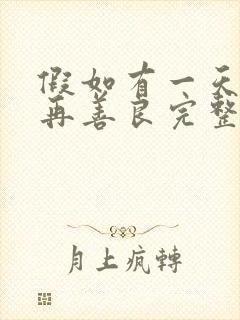 假如有一天
再善良完整
月上疯轉